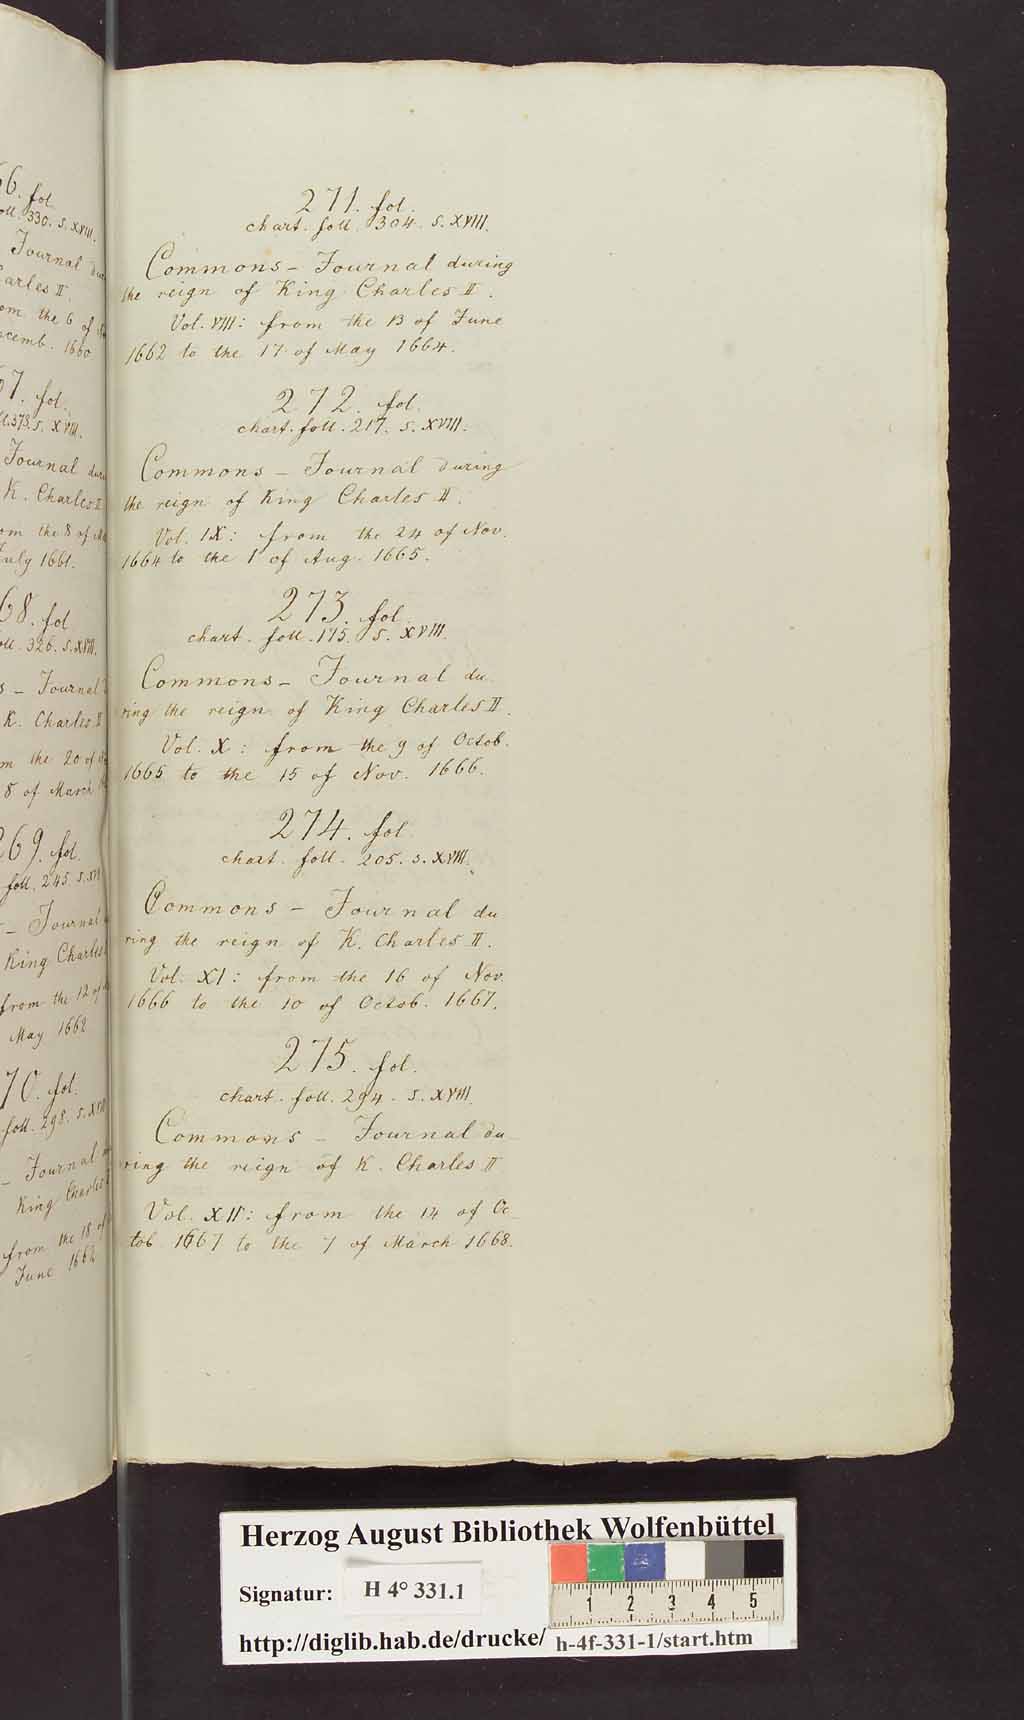 66. fol.
foll. 330. s. XVIII.
Journal
Charles II.
from the 6 of
Decemb. 1660
67. fol.
foll. 373. s. XVIII.
Journal
K. Charles II
from the 8 of
July 1661.
68. fol
foll. 326. s. XVIII.
s - Journal
K. Charles II
from the 20 of
8 of March
269. fol.
foll. 245. s.
- Journal
King Charles
from the 12 of
May 1662
70. fol.
foll. 298. s. XVIII
- Journal
King Charles
from the 18 of
June 1662
271. fol.
chart. foll. 304. s. XVIII.
Commons - Journal during
the reign of King Charles II.
Vol. VIII: from the 13 of June
1662 to the 17 of May 1664.
272. fol.
chart. foll. 217. s. XVIII.
Commons - Journal during
the reign of King Charles II.
Vol. IX: from the 24 of Nov.
1664 to the 1 of Aug. 1665.
273. fol.
chart. foll. 175. s. XVIII.
Commons - Journal du
ring the reign of King Charles II.
Vol. X: from the 9 of Octob.
1665 to the 15 of Nov. 1666.
274. fol
chart. foll. 205. s. XVIII.
Commons - Journal du
ring the reign of K. Charles II.
Vol. XI: from the 16 of Nov.
1666 to the 10 of Octob. 1667.
275. fol.
chart. foll. 294. s. XVIII.
Commons - Journal du
ring the reign of K. Charles II
Vol. XII: from the 14 of Oc-
tob 1667 to the 7 of March 1668.
Herzog August Bibliothek Wolfenbüttel
Signatur: H 4° 331.1
1 2 3 4 5
http://diglib.hab.de/drucke/ h-4f-331-1/start.htm